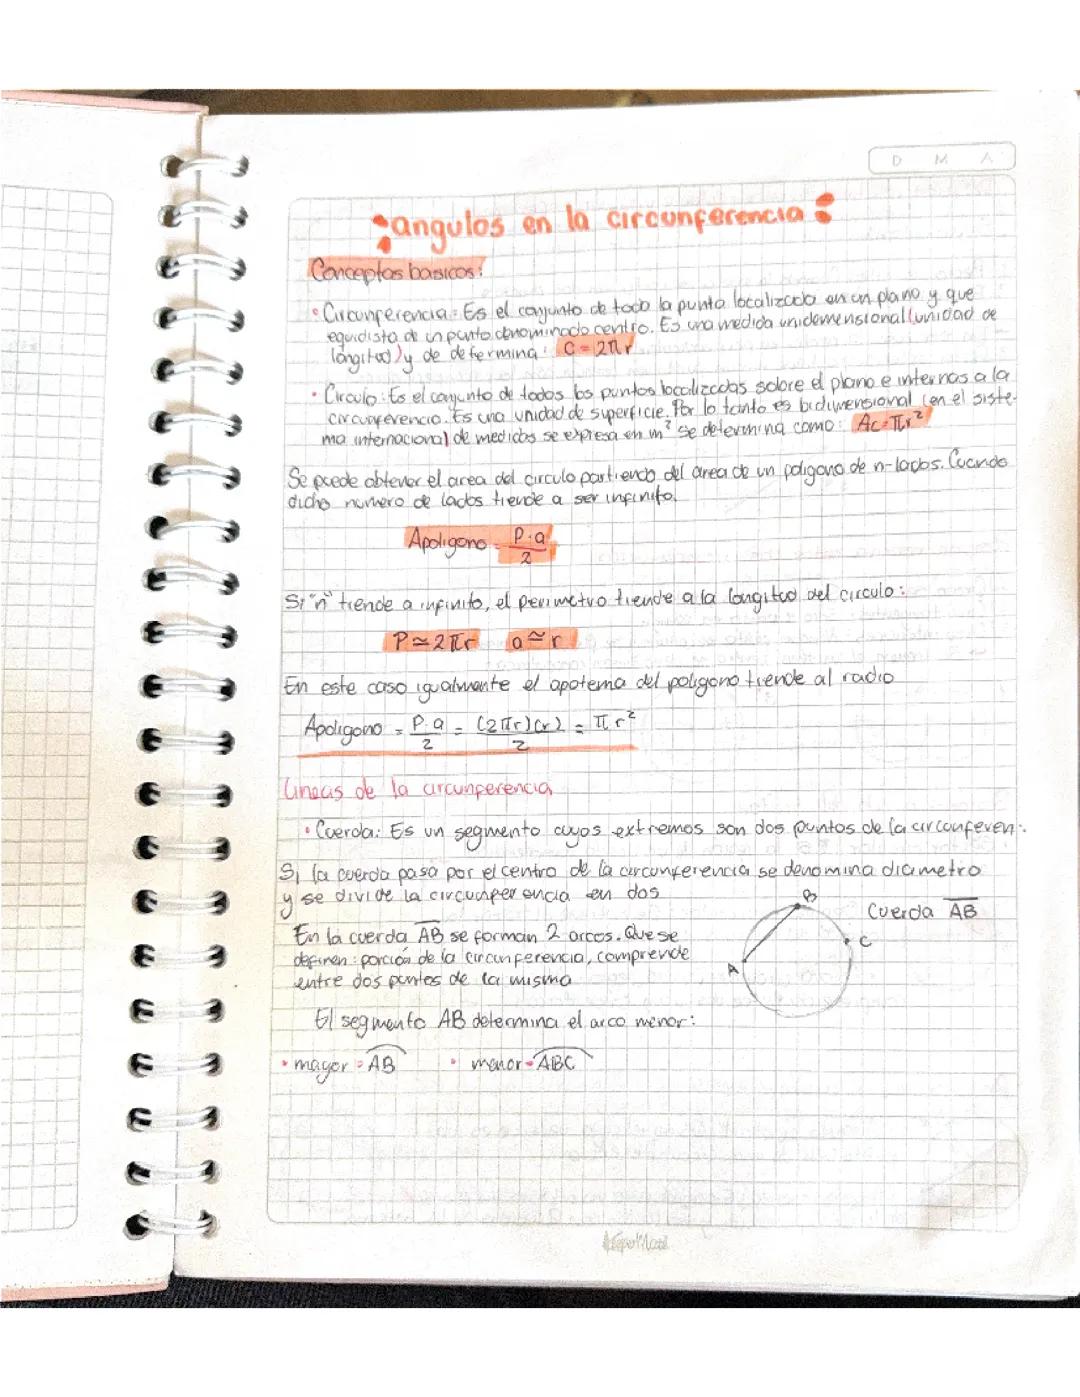 D M A
angulos en la circunferencia
Conceptos basicos:
• Circunferencia: Es el conjunto de todo la punto localizado en un plano y que
equidista de un punto denominado centro. Es una medida unidemensional (unidad de
longitud) y de determina: C = 2πr
• Circulo: Es el conjunto de todos los puntos localizados sobre el plano e internos a la
circunferencia. Es una unidad de superficie. Por lo tanto es bidimensional (en el siste-
ma internacional de medidas se expresa en m² se determina como: Ac = πr²
Se puede obtener el area del circulo partiendo del area de un poligono de n-lados. Cuando
dicho numero de lados tiende a ser infinito.
Apoligono = P·a/2
Si "n" tiende a infinito, el perimetro tiende a la longitud del circulo:
P ≃ 2πr a ≃ r
En este caso igualmente el apotema del poligono tiende al radio
Apoligono = P·a/2 = (2πr)(r)/2 = πr²
Lineas de la circunferencia
• Cuerda: Es un segmento cuyos extremos son dos puntos de la circonferen.
Si la cuerda pasa por el centro de la circunferencia se denomina diametro
y se divide la circunferencia en dos
B
Cuerda A̅B̅
En la cuerda A̅B̅ se forman 2 arcos. Que se
C
definen: porción de la circunferencia, comprende
A
entre dos puntos de la misma
El segmento AB determina el arco menor:
• mayor = AB • menor = ABC